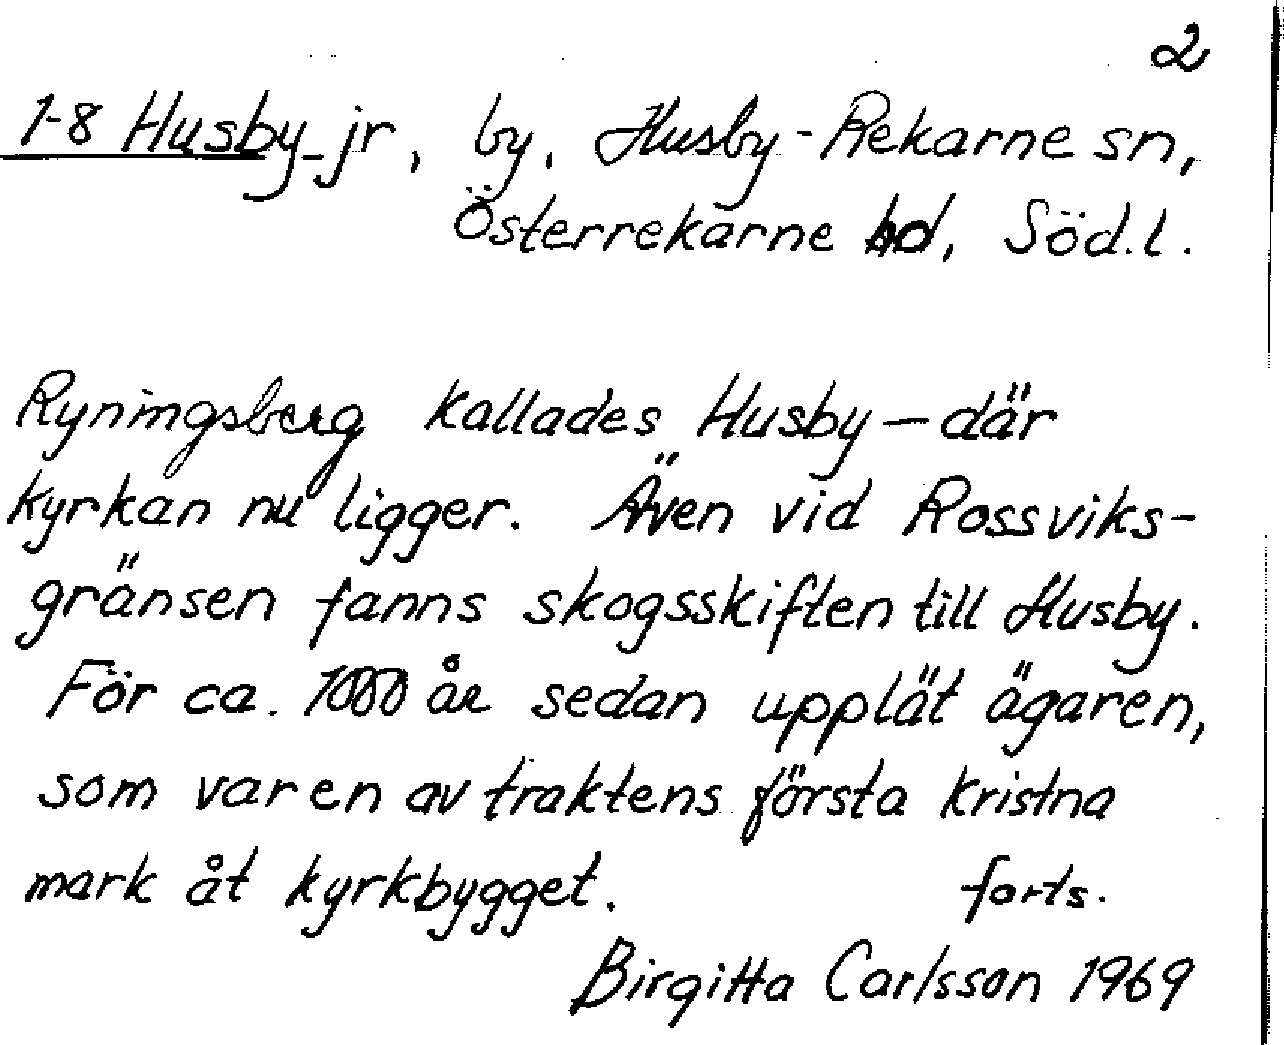 2
1-8 Husby_jr, by, Husby-Rekarne sn,
Österrekarne hd, Söd.l.
Ryningsberg kallades Husby – där
kyrkan nu ligger. Även vid Rossviks-
gränsen fanns skogsskiften till Husby.
För ca. 1000 år sedan upplät ägaren,
som var en av traktens första kristna
mark åt kyrkbygget. forts.
Birgitta Carlsson 1969